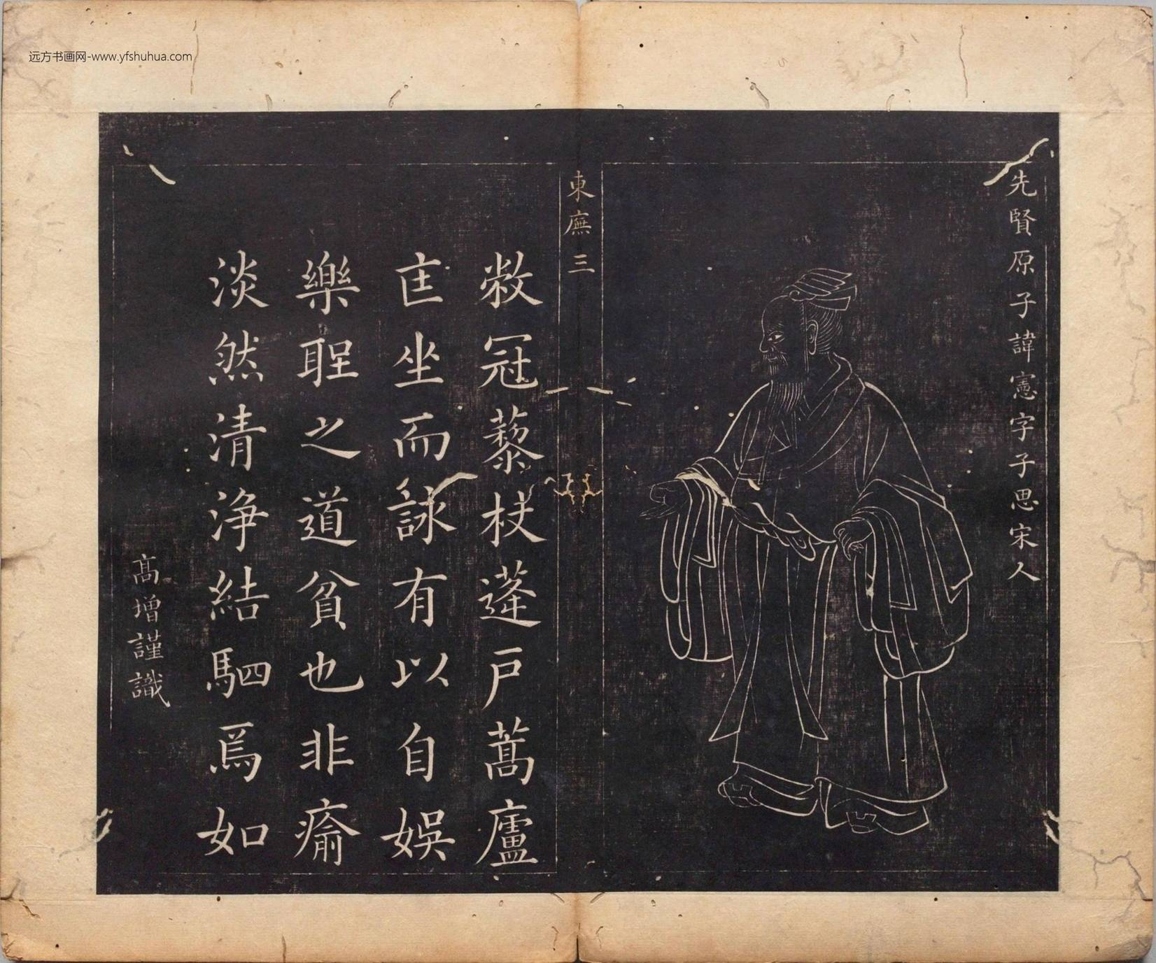 远方书画网-www.yfshuhua.com
先賢原子諱憲字子思宋人
東廡三
敝冠藜杖蓬戸蒿廬
匡坐而詠有以自娛
樂聖之道貧也非瘉
淡然清浄結駟焉如
髙增謹識